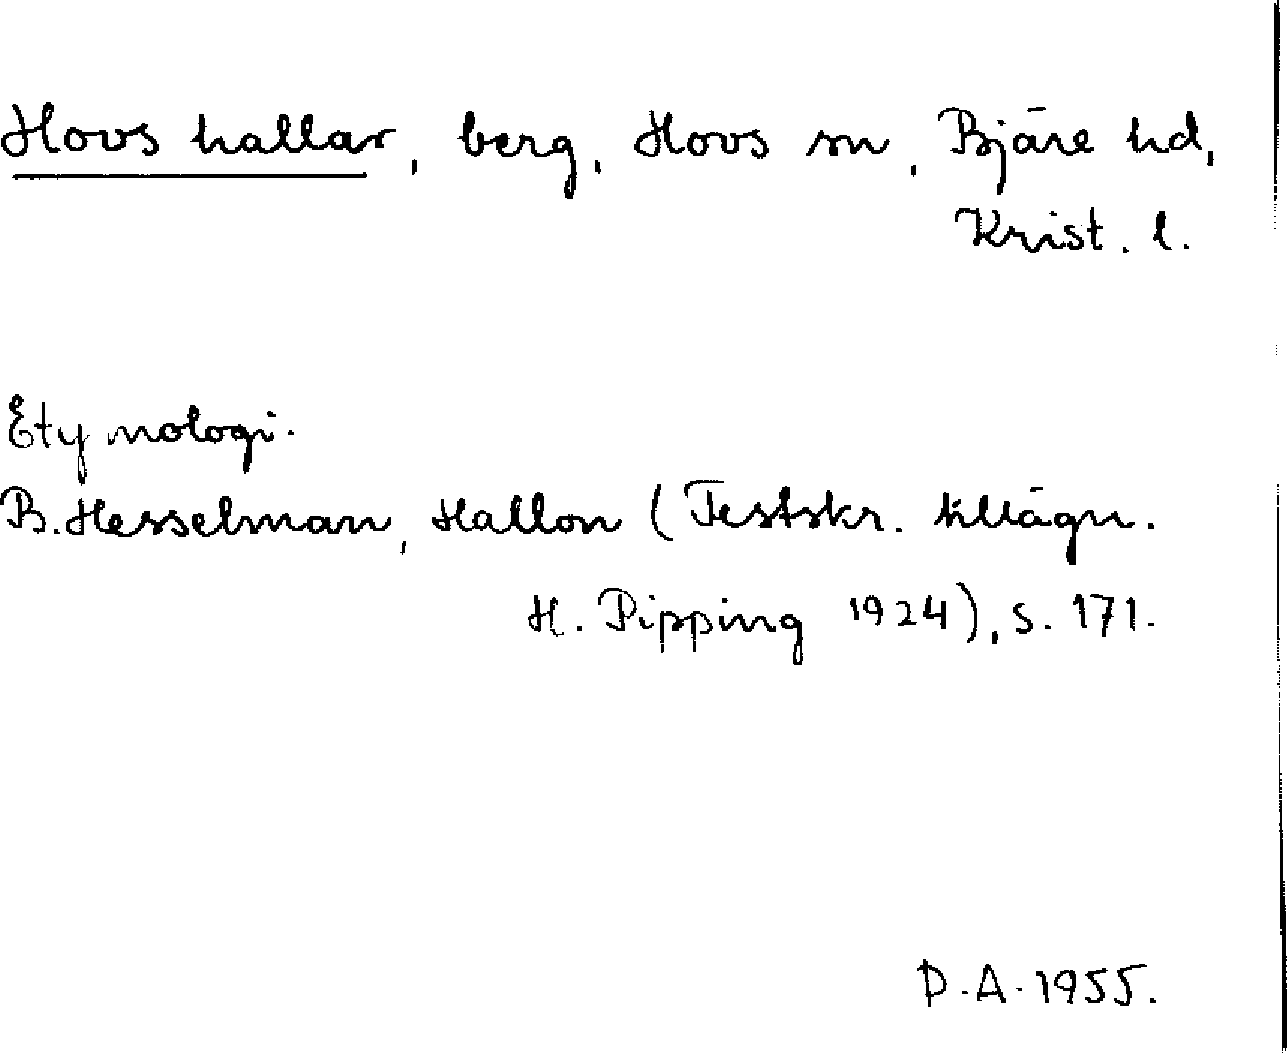 Hovs hallar, berg, Hovs sn, Bjäre hd,
Krist. l.
Etymologi.
B. Hesselman, Hallon (Festskr. tillägn.
H. Pipping 1924), s. 171.
D.A. 1955.